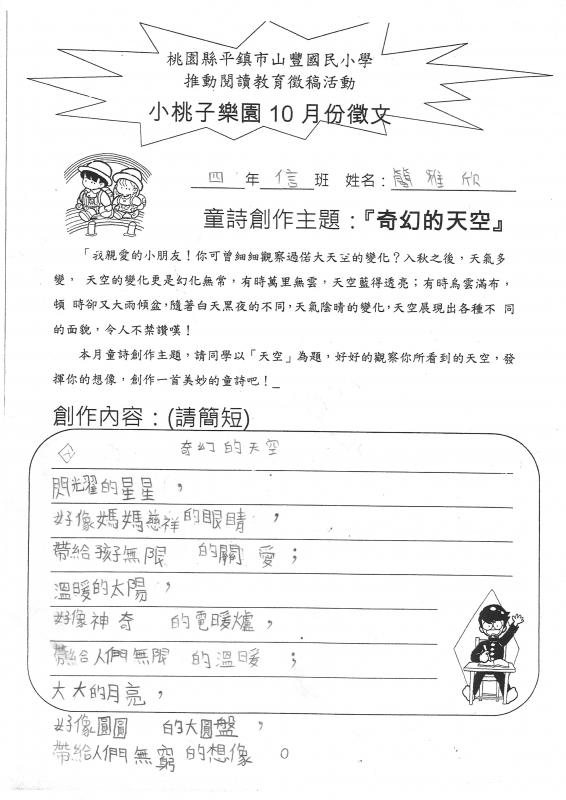 桃園縣平鎮市山豐國民小學
推動閱讀教育徵稿活動
小桃子樂園 10 月份徵文
四 年 信 班 姓名：簡 雅 欣
童詩創作主題：『奇幻的天空』
「我親愛的小朋友！你可曾細細觀察過偌大天空的變化？入秋之後，天氣多
變， 天空的變化更是幻化無常，有時萬里無雲，天空藍得透亮；有時烏雲滿布，
頓 時卻又大雨傾盆，隨著白天黑夜的不同，天氣陰晴的變化，天空展現出各種不 同
的面貌，令人不禁讚嘆！
本月童詩創作主題，請同學以「天空」為題，好好的觀察你所看到的天空，發
揮你的想像，創作一首美妙的童詩吧！_
創作內容：(請簡短)
奇幻的天空
閃光耀的星星，
好像媽媽慈祥的眼睛，
帶給孩子無限 的關愛；
溫暖的太陽，
好像神奇 的電暖爐，
帶給人們無限 的溫暖；
大大的月亮，
好像圓圓 的大圓盤，
帶給人們無窮的想像。